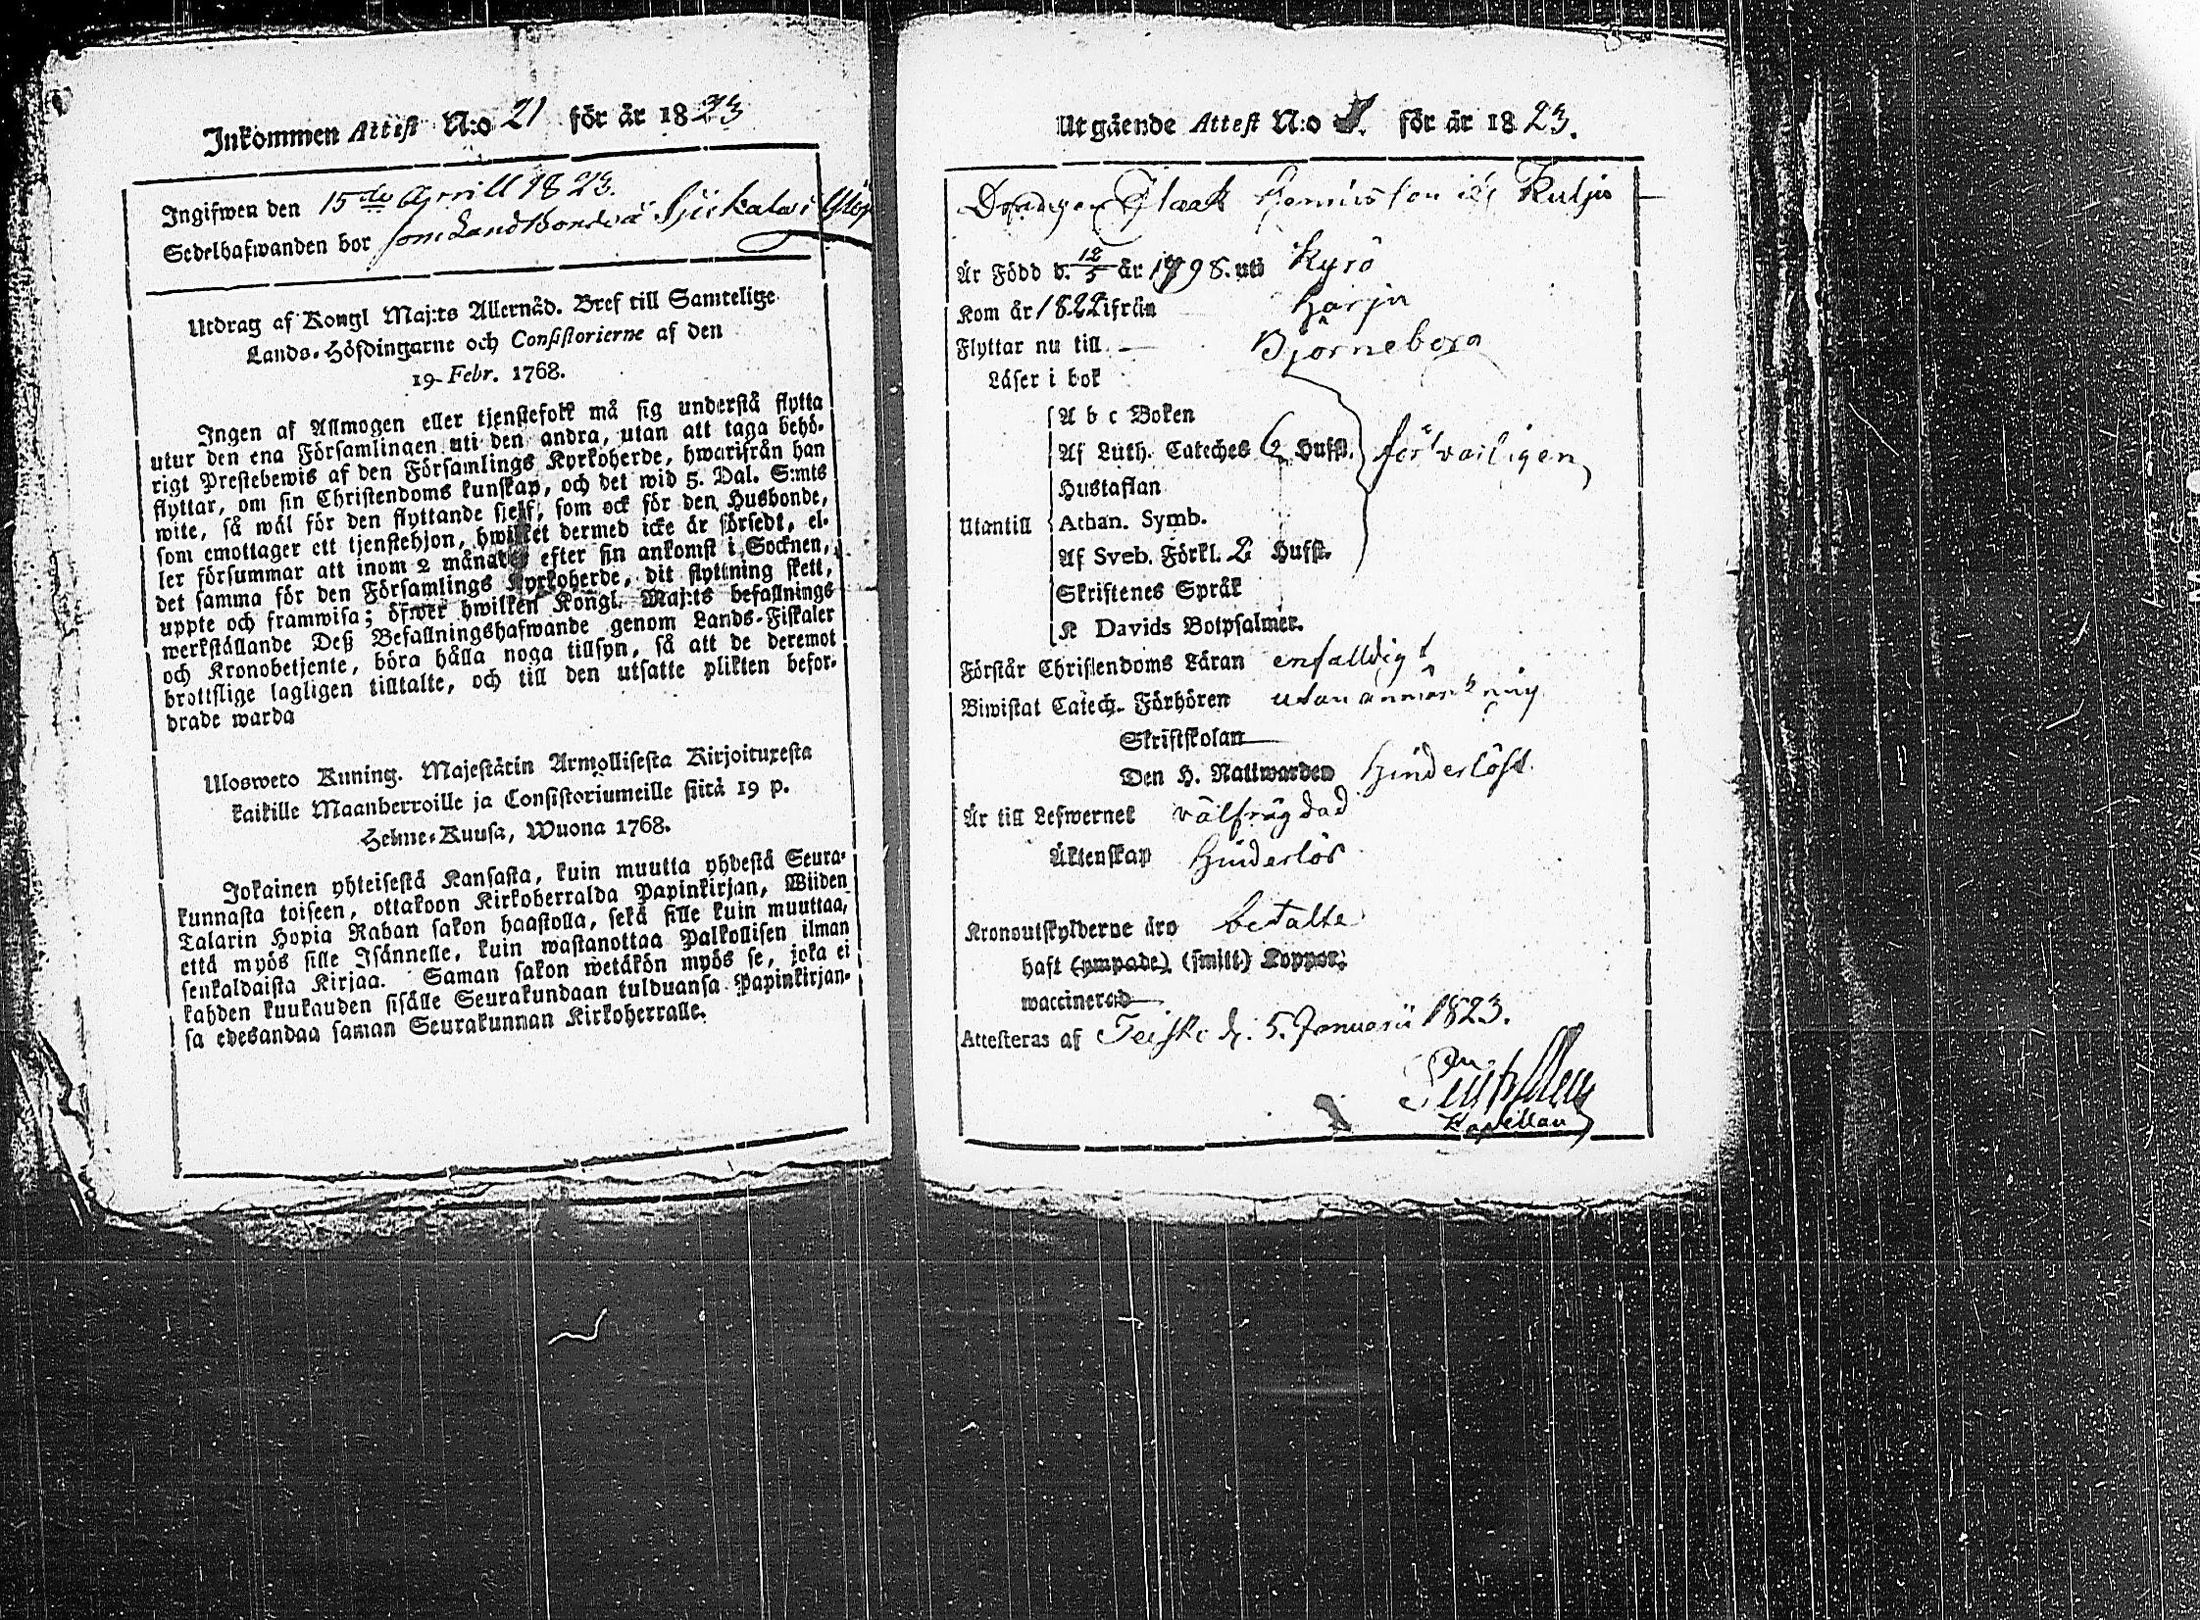 Inkommen Attest N:o 21 för år 1823
Ingifwen den 15de Aprill 1823.
Sedelhafwanden bor som Landtbonde å
Utdrag af Kongl Maj:ts Allernåd. Bref till Samtelige
Lands-Höfdingarne och Consistorierne af den
19 Febr. 1768.
Ingen af Allmogen eller tjenstefolk må sig understå flytta
utur den ena Församlingen uti den andra, utan att taga behö-
rigt Prestebewis af den Församlings Kyrkoherde, hwarifrån han
flyttar, om sin Christendoms kunskap, och det wid 5. Dal. S:mts
wite, så wäl för den flyttande sjelf, som ock för den Husbonde,
som emottager ett tjenstehjon, hwilket dermed icke är försedt, el-
ler försummar att inom 2 månader efter sin ankomst i Socknen,
det samma för den Församlings Kyrkoherde, dit flyttning skett,
uppte och framwisa; öfwer hwilken Kongl. Maj:ts befallnings
werkställande Deß Befallningshafwande genom Lands-Fiskaler
och Kronobetjente, böra hålla noga tillsyn, så att de deremot
brottslige lagligen tilltalte, och till den utsatte plikten befor-
drade warda
Ulosweto Kuning. Majestätin Armollisesta Kirjoituxesta
kaikille Maanherroille ja Consistoriumeille siitä 19 p.
Helme-Kuusa, Wuona 1768.
Jokainen yhteisestä Kansasta, kuin muutta yhdestä Seura-
kunnasta toiseen, ottakoon Kirkoherralda Papinkirjan, Wiiden
Talarin Hopia Rahan sakon haastolla, sekä sille kuin muuttaa,
että myös sille Isännelle, kuin wastanottaa Palkollisen ilman
senkaldaista Kirjaa. Saman sakon wetäkön myös se, joka ei
kahden kuukauden sisälle Seurakundaan tulduansa Papinkirjan-
sa edesandaa saman Seurakunnan Kirkoherralle.
Utgående Attest N:o för år 1823.
Drängen Isaak ifr Kulju
Är Född d. 12/5 år 1798. uti Kyrö
Kom år 1822 ifrån Harju
Flyttar nu till Björneborg
Läser i bok
A b c Boken
Af Luth. Cateches 6 Hufst. försvarligen
Hustaflan
Utantill Athan. Symb.
Af Sveb. Förkl. 2 Hufst.
Skriftenes Språk
K Davids Botpsalmer.
Förstår Christendoms Läran enfalldigt
Biwistat Catech. Förhören utan anmärkning
Skriftskolan
Den H. Nattwarden Hinderlöst
Är till Lefwernet välfrägdad
Äktenskap Hinderlös
Kronoutskylderne äro betalte
haft (ympade) (smitt) Koppor;
waccinerad
Attesteras af Teisko d. 5. Januarii 1823.
Kapellan